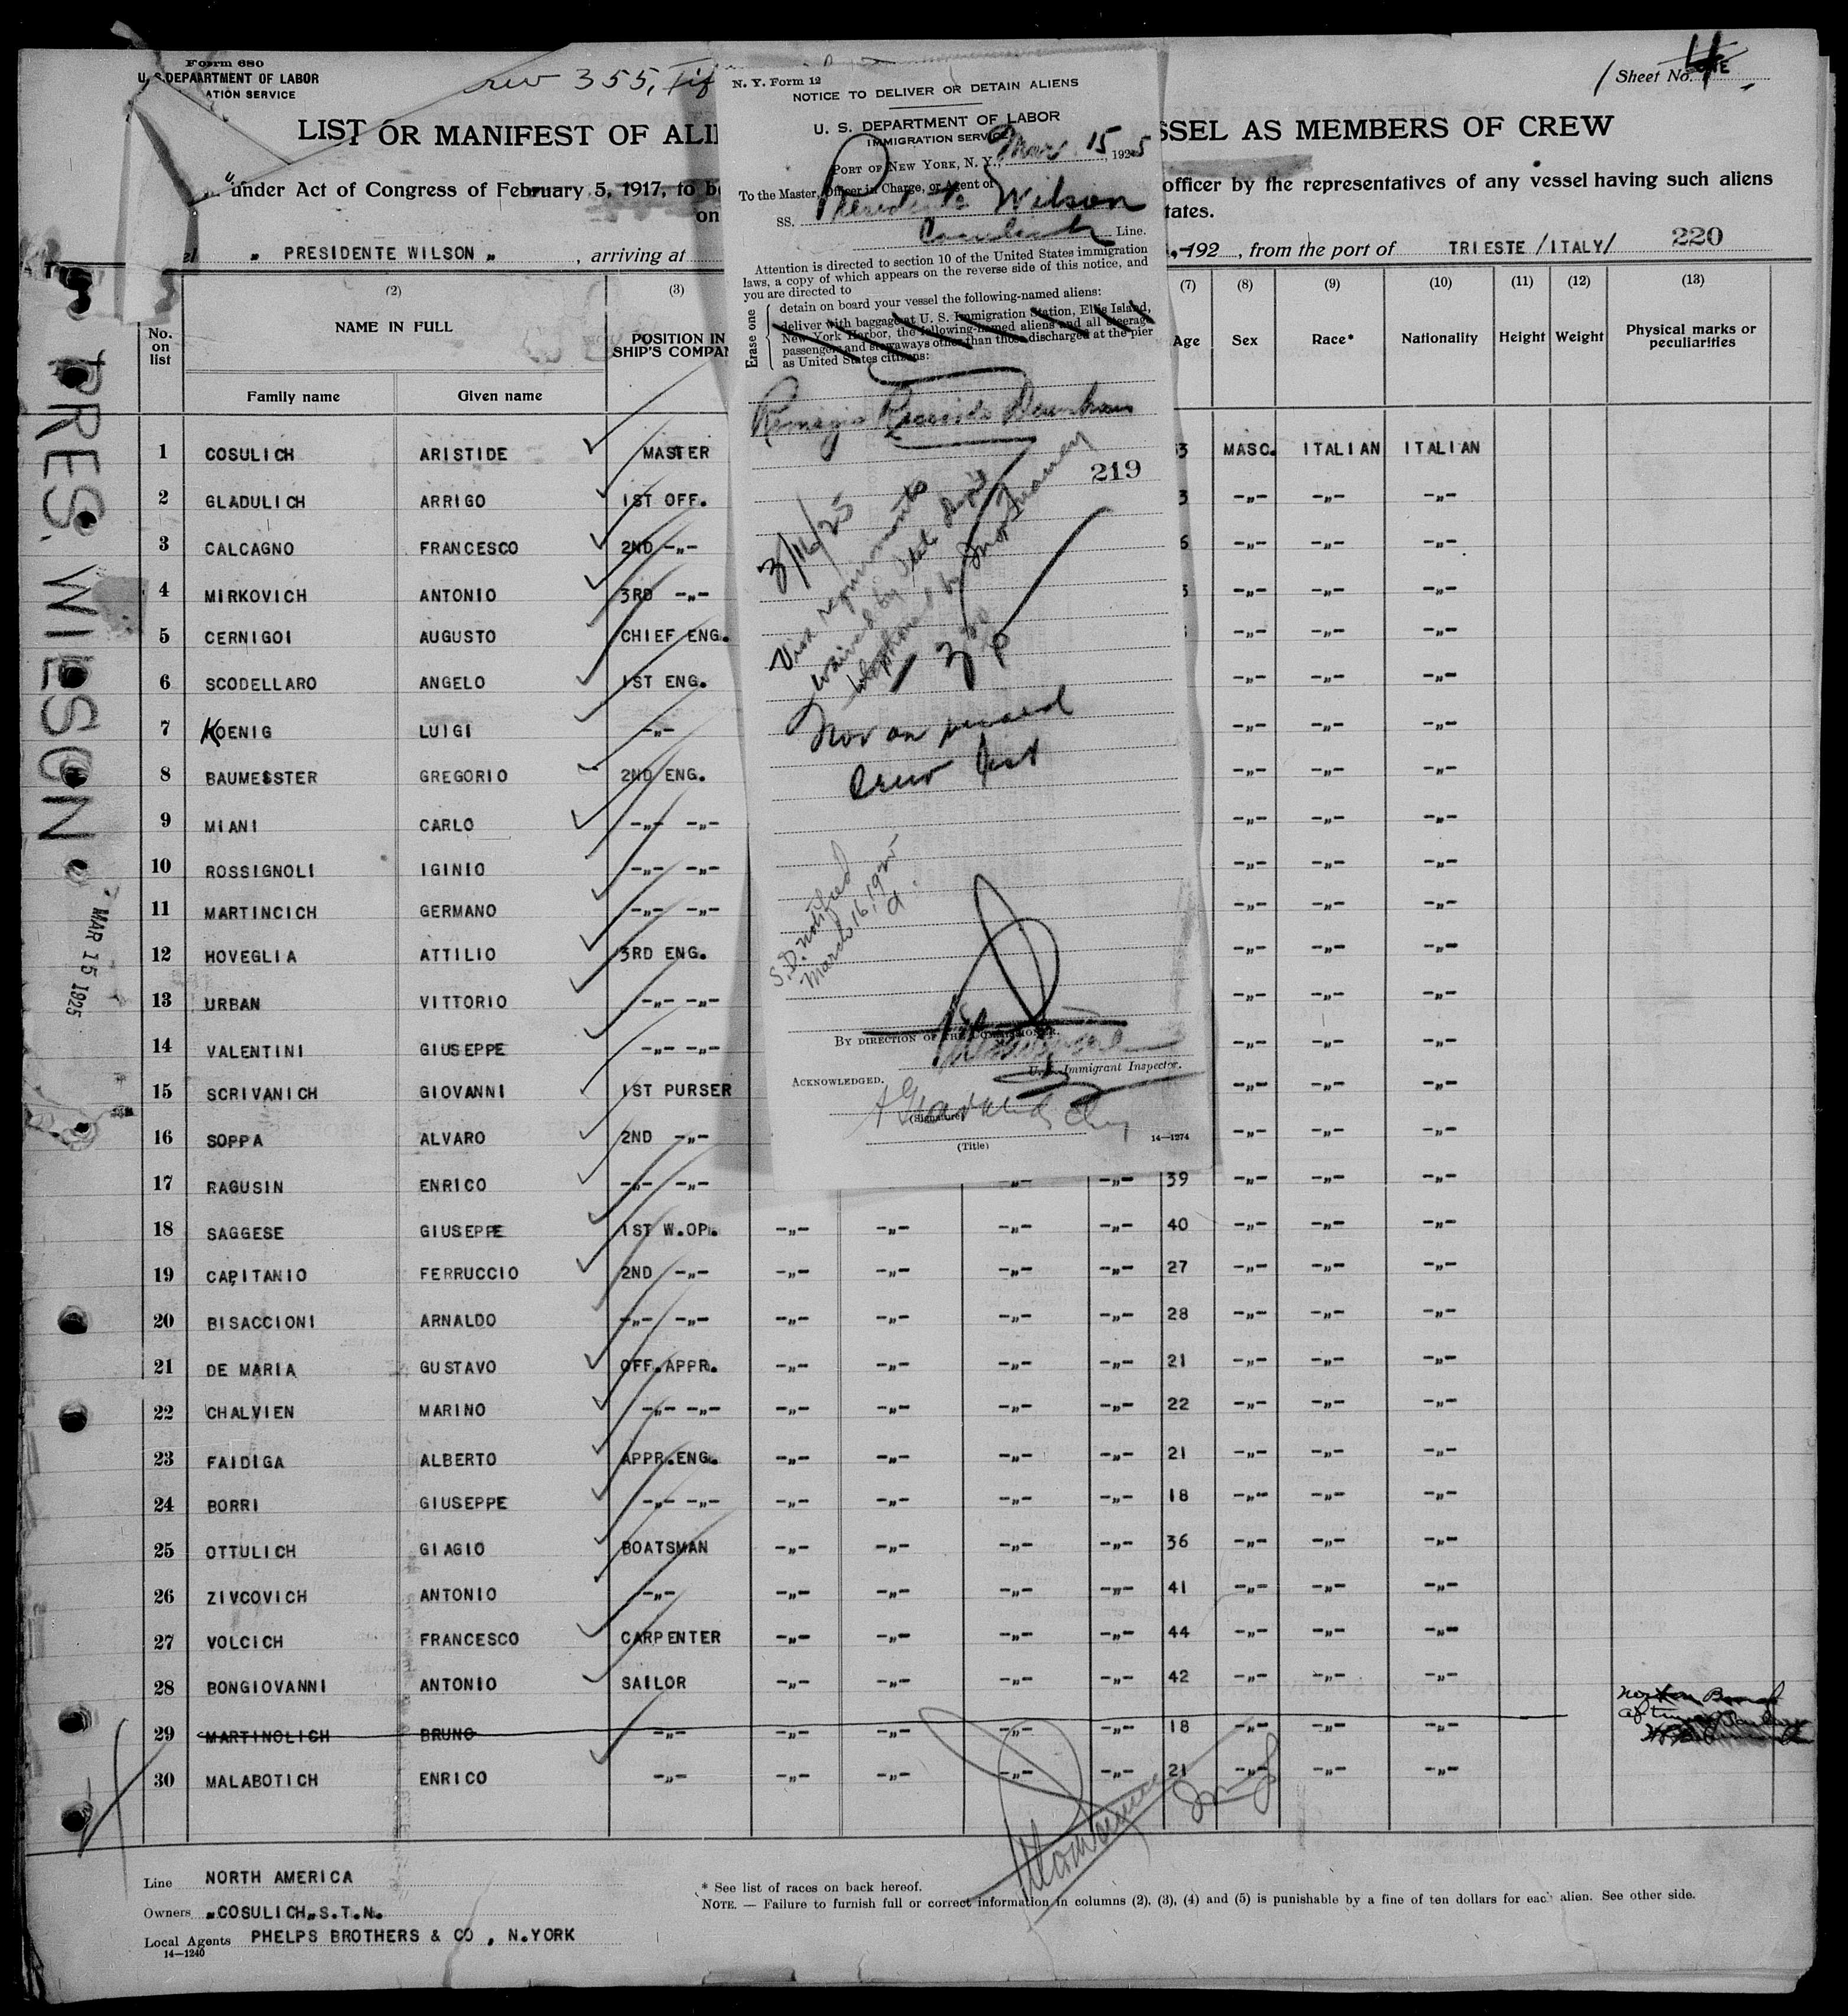 Form 680
U. S. DEPARTMENT OF LABOR
ATION SERVICE
355,
Sheet No. 4
LIST OR MANIFEST OF ALI
SSEL AS MEMBERS OF CREW
under Act of Congress of February 5, 1917, to b
officer by the representatives of any vessel having such aliens
on
tates.
el „ PRESIDENTE WILSON „ , arriving at
192 , from the port of TRIESTE /ITALY/ 220
N. Y. Form 12
NOTICE TO DELIVER OR DETAIN ALIENS
U. S. DEPARTMENT OF LABOR
IMMIGRATION SERVICE
PORT OF NEW YORK, N. Y., Mar 15, 1925
To the Master, Officer in Charge, or Agent of
SS. Presidente Wilson
Cosulich Line.
Attention is directed to section 10 of the United States immigration
laws, a copy of which appears on the reverse side of this notice, and
you are directed to
Erase one
detain on board your vessel the following-named aliens:
deliver with baggage at U. S. Immigration Station, Ellis Island,
New York Harbor, the following-named aliens and all steerage
passengers and stowaways other than those discharged at the pier
as United States citizens:
Remigio
219
3/16/25
Visa requirements
waived by State Dept
telephoned by
3 30 P
Not on
Crew List
S.D. notified
March 16, 1925
BY DIRECTION OF THE COMMISSIONER.
U. S. Immigrant Inspector.
ACKNOWLEDGED.
(Signature)
(Title)
14—1274
PRES. WILSON
MAR 15 1925
No. on list
(2)
NAME IN FULL
Family name Given name
(3)
POSITION IN
SHIP'S COMPAN
(7) Age
(8) Sex
(9) Race*
(10) Nationality
(11) Height
(12) Weight
(13) Physical marks or peculiarities
1 COSULICH ARISTIDE MASTER 3 MASC. ITALIAN ITALIAN
2 GLADULICH ARRIGO 1ST OFF. 3 -„- -„- -„-
3 CALCAGNO FRANCESCO 2ND -„- 6 -„- -„- -„-
4 MIRKOVICH ANTONIO 3RD -„- -„- -„- -„-
5 CERNIGOI AUGUSTO CHIEF ENG. -„- -„- -„-
6 SCODELLARO ANGELO 1ST ENG. -„- -„- -„-
7 KOENIG LUIGI -„- -„- -„- -„-
8 BAUMESSTER GREGORIO 2ND ENG. -„- -„- -„-
9 MIANI CARLO -„- -„- -„- -„- -„-
10 ROSSIGNOLI IGINIO -„- -„- -„- -„- -„-
11 MARTINCICH GERMANO -„- -„- -„- -„- -„-
12 HOVEGLIA ATTILIO 3RD ENG. -„- -„- -„-
13 URBAN VITTORIO -„- -„- -„- -„- -„-
14 VALENTINI GIUSEPPE -„- -„- -„- -„- -„-
15 SCRIVANICH GIOVANNI 1ST PURSER -„- -„- -„-
16 SOPPA ALVARO 2ND -„- -„- -„- -„-
17 RAGUSIN ENRICO -„- -„- -„- -„- 39 -„- -„- -„-
18 SAGGESE GIUSEPPE 1ST W.OP. -„- -„- -„- -„- 40 -„- -„- -„-
19 CAPITANIO FERRUCCIO 2ND -„- -„- -„- -„- -„- 27 -„- -„- -„-
20 BISACCIONI ARNALDO -„- -„- -„- -„- -„- -„- 28 -„- -„- -„-
21 DE MARIA GUSTAVO OFF.APPR. -„- -„- -„- -„- 21 -„- -„- -„-
22 CHALVIEN MARINO -„- -„- -„- -„- -„- -„- 22 -„- -„- -„-
23 FAIDIGA ALBERTO APPR.ENG. -„- -„- -„- -„- 21 -„- -„- -„-
24 BORRI GIUSEPPE -„- -„- -„- -„- -„- -„- 18 -„- -„- -„-
25 OTTULICH GIAGIO BOATSMAN -„- -„- -„- -„- 36 -„- -„- -„-
26 ZIVCOVICH ANTONIO -„- -„- -„- -„- -„- 41 -„- -„- -„-
27 VOLCICH FRANCESCO CARPENTER -„- -„- -„- -„- 44 -„- -„- -„-
28 BONGIOVANNI ANTONIO SAILOR -„- -„- -„- -„- 42 -„- -„- -„-
29 MARTINOLICH BRUNO -„- -„- -„- -„- -„- 18 -„- -„- -„-
30 MALABOTICH ENRICO -„- -„- -„- -„- -„- 21 -„- -„- -„-
Line NORTH AMERICA
Owners „COSULICH„S.T.N.
Local Agents PHELPS BROTHERS & CO , N.YORK
14—1240
* See list of races on back hereof.
NOTE. — Failure to furnish full or correct information in columns (2), (3), (4) and (5) is punishable by a fine of ten dollars for each alien. See other side.